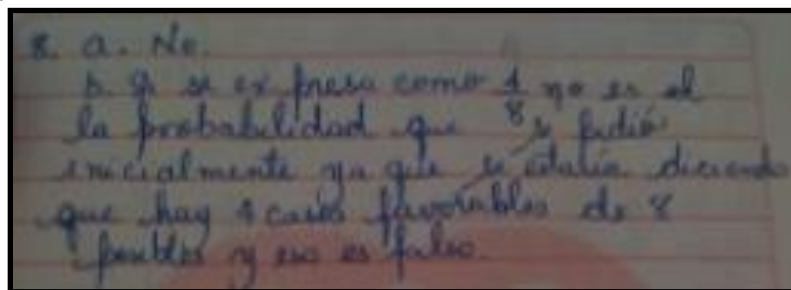 8. a. No.
b. Si se expresa como 4/8 no es el
la probabilidad que se pidió
inicialmente ya que se estaría diciendo
que hay 4 casos favorables de 8
posibles y eso es falso.